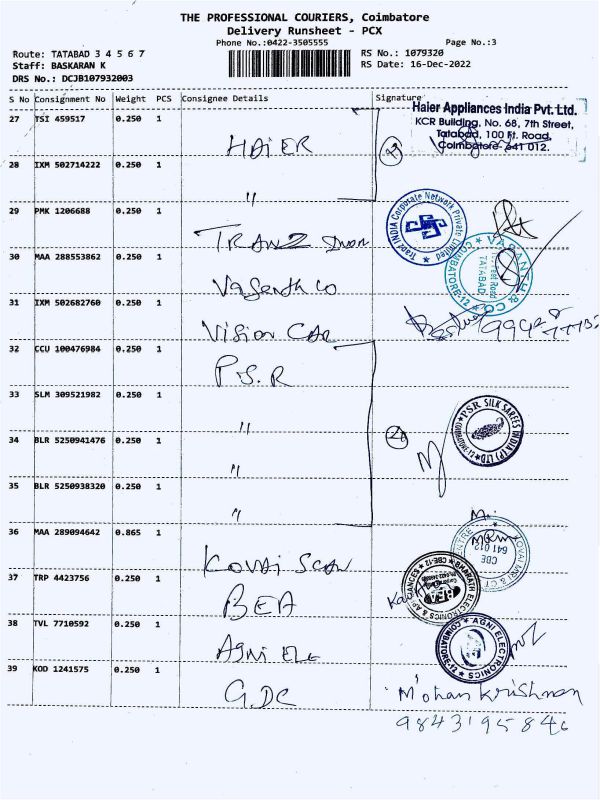 THE PROFESSIONAL COURIERS, Coimbatore
Delivery Runsheet - PCX
Phone No.:0422-3505555
Page No.:3
Route: TATABAD 3 4 5 6 7
Staff: BASKARAN K
DRS No.: DCJB107932003
RS No.: 1079320
RS Date: 16-Dec-2022
S No Consignment No Weight PCS Consignee Details Signature
Haier Appliances India Pvt. Ltd.
KCR Building, No. 68, 7th Street,
Tatabad, 100 Ft. Road,
Coimbatore- 641 012.
27 TSI 459517 0.250 1
HAiER
28 IXM 502714222 0.250 1
"
29 PMK 1206688 0.250 1
TRANZ
30 MAA 288553862 0.250 1
Vasenth co
31 IXM 502682760 0.250 1
Vision Car
32 CCU 100476984 0.250 1
P.S.R
33 SLM 309521982 0.250 1
"
PSR SILK SAREES INDIA (P) LTD
COIMBATORE-12
34 BLR 5250941476 0.250 1
"
35 BLR 5250938320 0.250 1
"
36 MAA 289094642 0.865 1
Kovai Scan
CBE
641 012
37 TRP 4423756 0.250 1
BEA
BHARATH ELECTRONICS & APPLIANCES
CBE-12
BEA
38 TVL 7710592 0.250 1
Agni Ele
AGNI ELECTRONICS
COIMBATORE-12
39 KOD 1241575 0.250 1
G.DC
Mohan Krishnan
9843195846